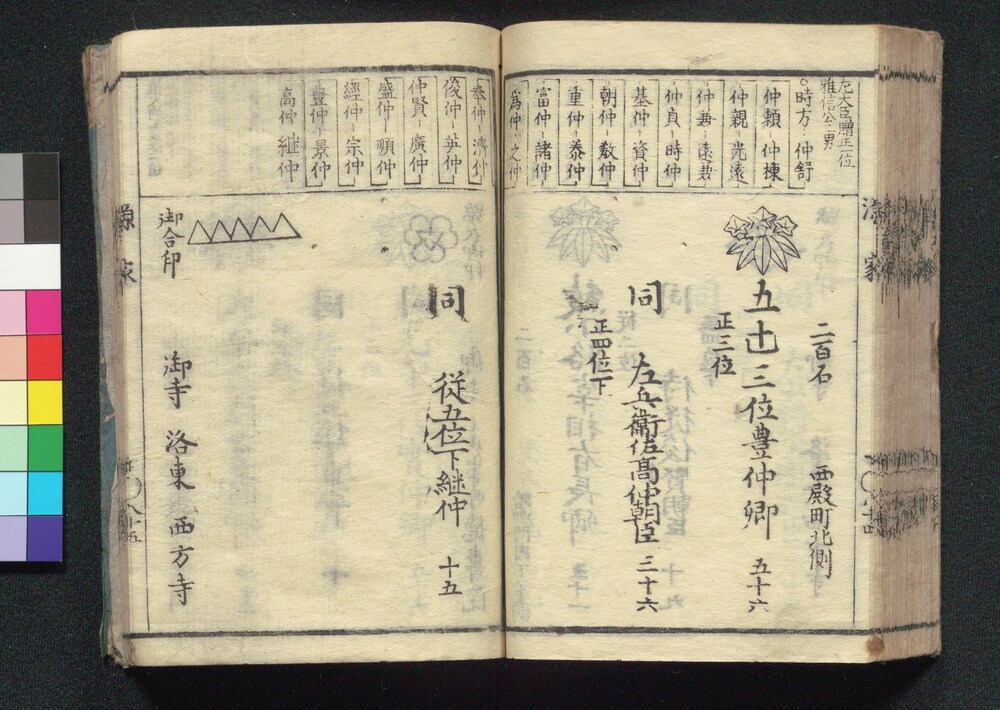 左大臣贈正一位
雅信公二男
時方 仲舒
仲頼 仲棟
仲親 光遠
仲兼 遠兼
仲貞 時仲
基仲 資仲
朝仲 敦仲
重仲 泰仲
富仲 諸仲
為仲 之仲
奉仲 済仲
俊仲 英仲
仲賢 廣仲
盛仲 順仲
經仲 宗仲
豊仲 景仲
高仲 継仲
源家
二百石 西殿町北側
五辻三位豊仲卿 五十六
正三位
同 左兵衛佐高仲朝臣 三十六
正四位下
同 従五位下継仲 十五
御合印
御寺 洛東 西方寺
源家